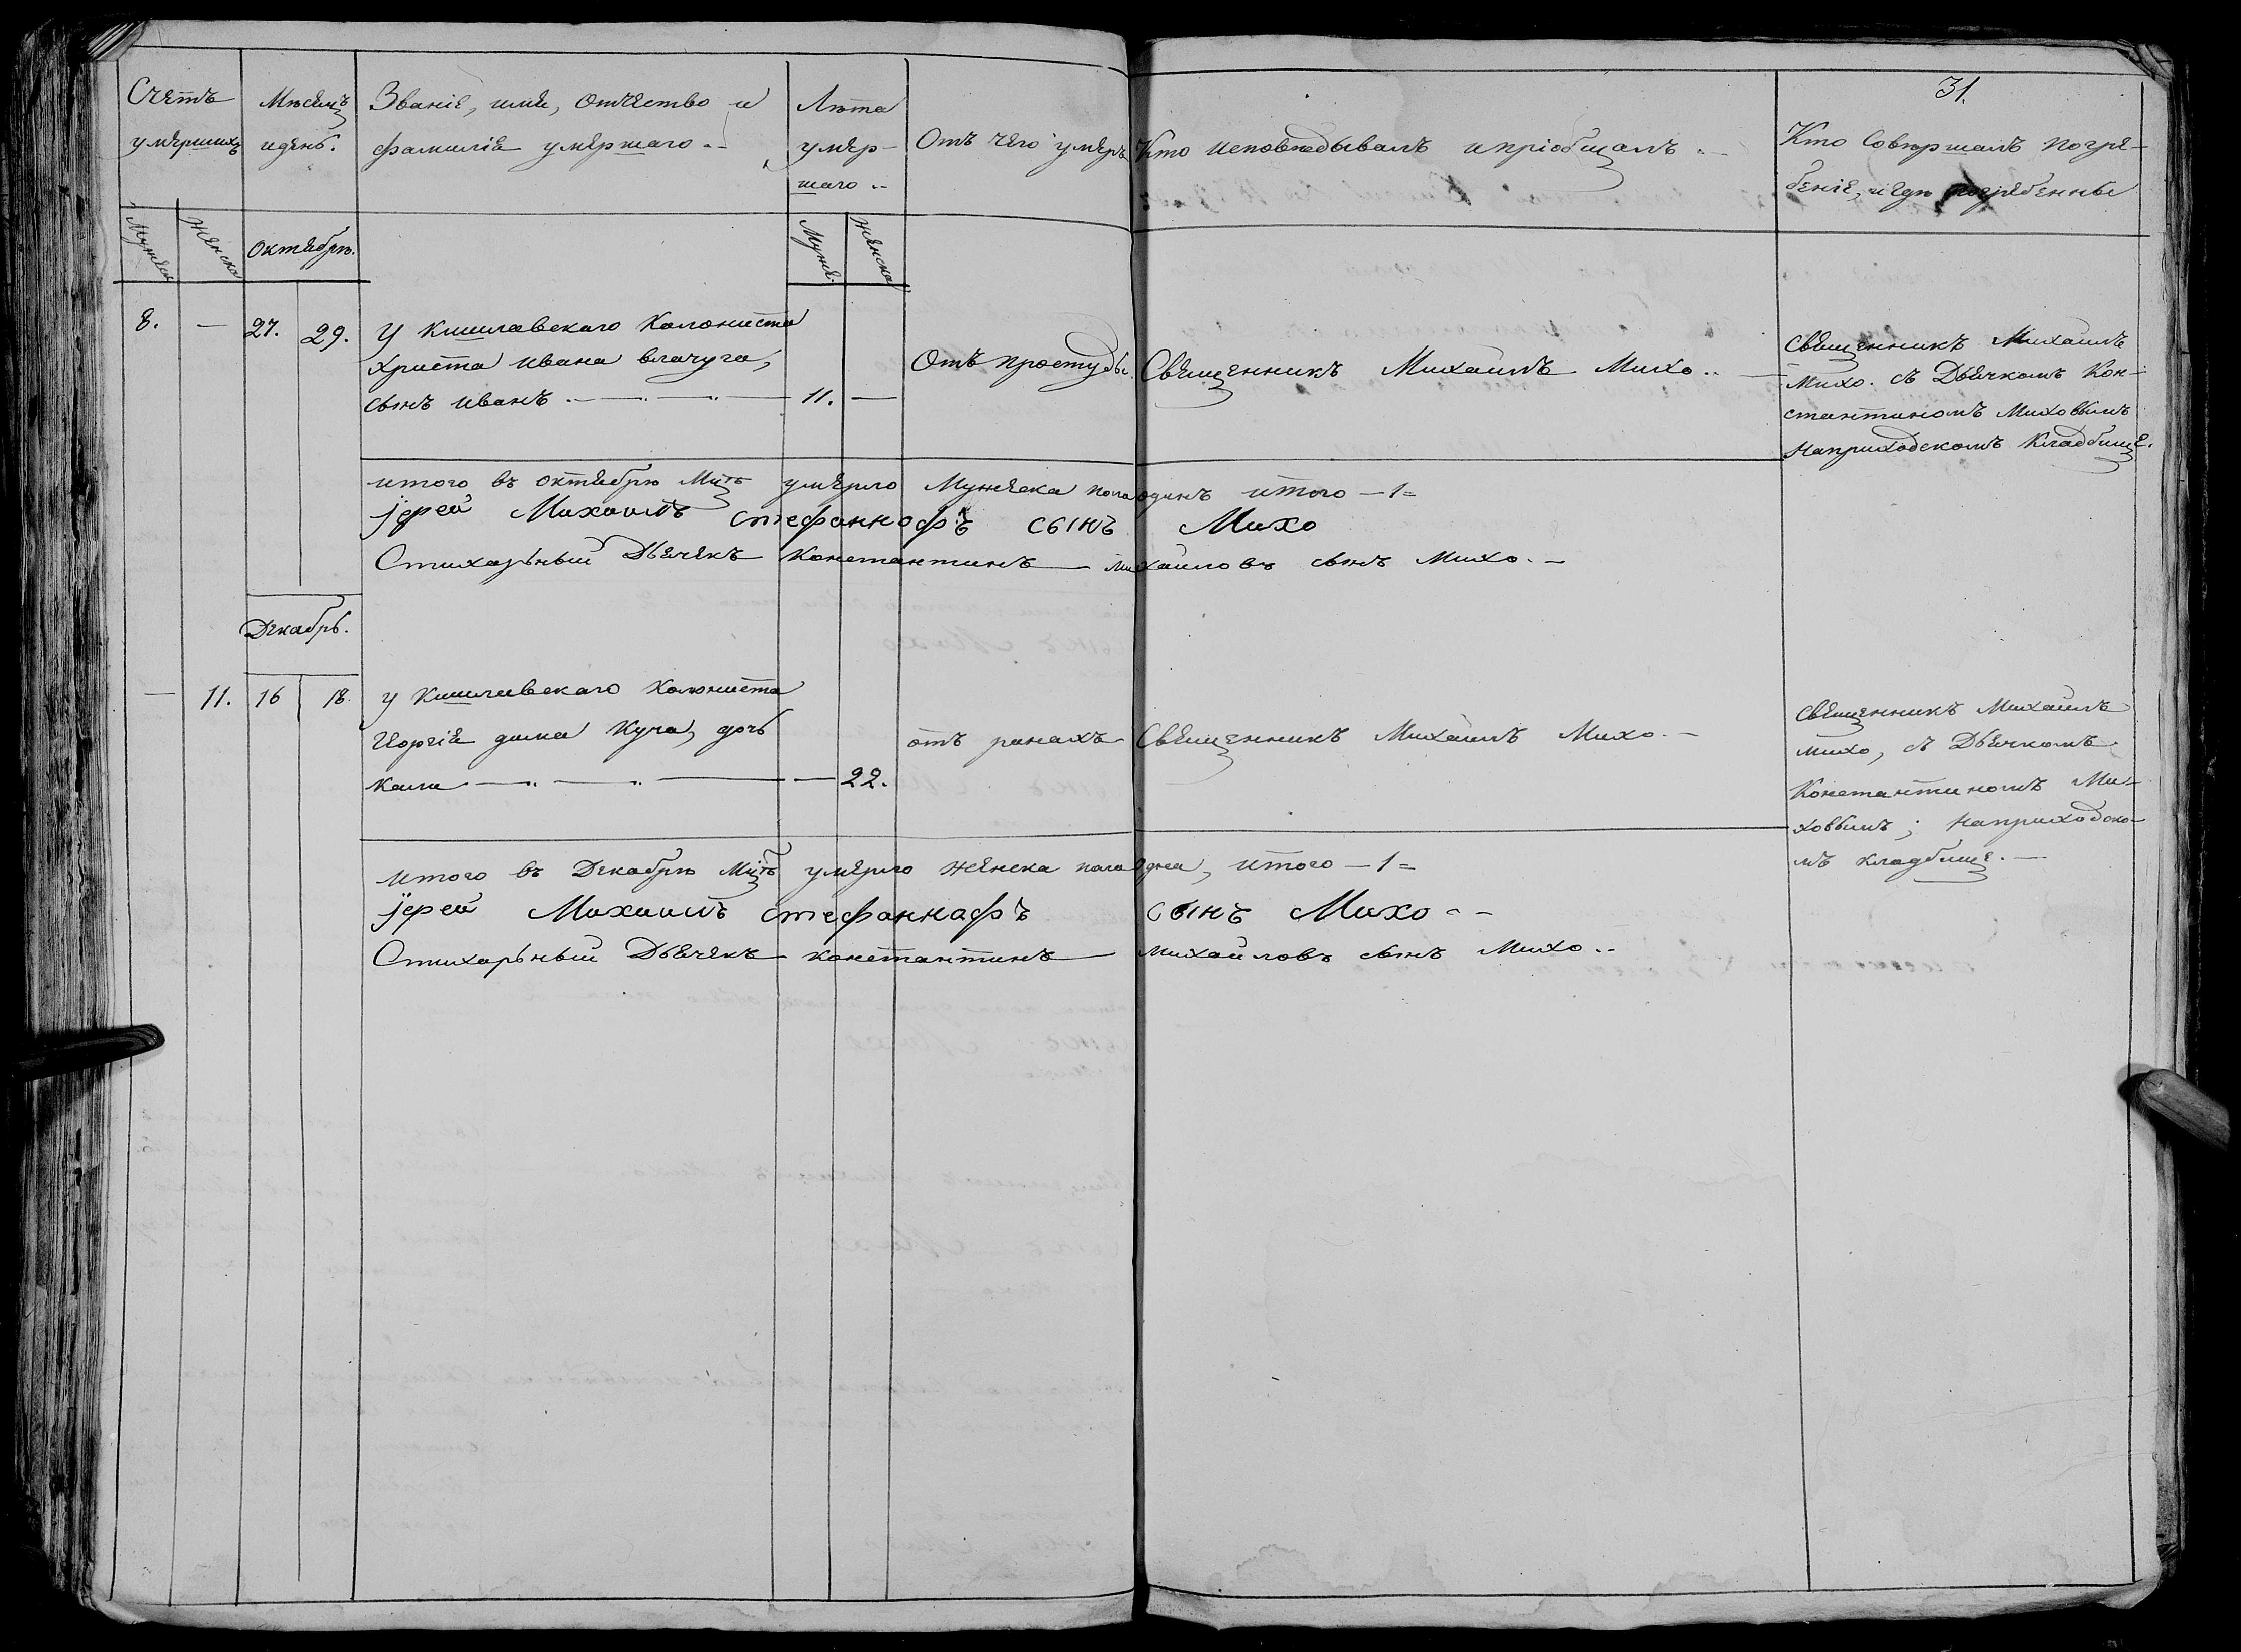 31.
Счетъ умершихъ
Мѣсяцъ идень.
Званіе, имя, отчество и фамиліе умершаго
Лѣта умер-шаго
Отъ чего умеръ
Кто исповѣдывалъ ипріобщалъ
Кто Совершалъ погре-
беніе, игдѣ погребенны
Мужеска
Женска
Октябрь.
Мужес.
Женска
8. — 27. 29.
У Кишлавскаго Колониста
Христа Ивана влачуга,
сынъ Иванъ 11. —
Отъ простуды.
Священникъ Михаилъ Михо
Священникъ Михаилъ
Михо. съ Дьячкомъ Кон-
стантиномъ Миховымъ
Наприходскомъ Кладбище.
итого въ октябрѣ Мцѣ умерло Мужеска пола одинъ итого — 1 =
јерей Михаилъ стефаннофъ сынъ Михо
Стихарный Дьячекъ Константинъ михаиловъ сынъ Михо. —
Декабрь.
— 11. 16 18.
у Кишлавскаго Колониста
Георгія дима Куча, дочь
Кали — 22.
отъ ранахъ
Священникъ Михаилъ Михо. —
священникъ Михаилъ
михо, съ Дьячкомъ
Константиномъ Ми-
ховымъ; наприходско-
мъ кладбище. —
итого въ Декабрѣ Мцѣ умерло женска пола одна, итого — 1 =
јерей Михаилъ стефаннафъ сынъ Михо
Стихарьный Дьячекъ константинъ михаиловъ сынъ Михо